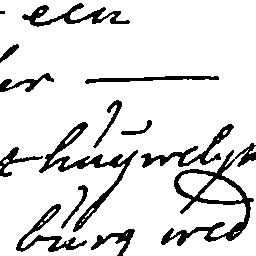 een
er —
t huÿwelyk
burg wed